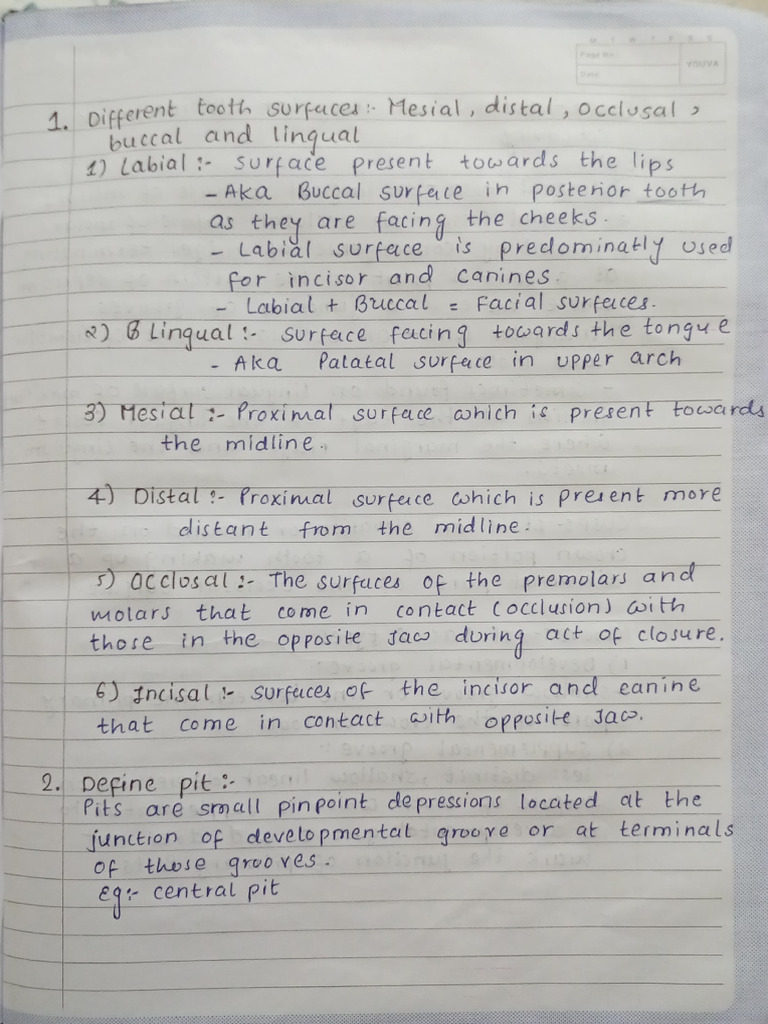 M T W T F S S
Page No.:
Date:
YOUVA
1. Different tooth surfaces:- Mesial, distal, occlusal,
buccal and lingual
1) Labial :- surface present towards the lips
- AKA Buccal surface in posterior tooth
as they are facing the cheeks.
- Labial surface is predominatly used
for incisor and canines.
- Labial + Buccal = Facial surfaces.
2) Lingual :- surface facing towards the tongue
- AKA Palatal surface in upper arch
3) Mesial :- Proximal surface which is present towards
the midline.
4) Distal :- Proximal surface which is present more
distant from the midline.
5) Occlusal :- The surfaces of the premolars and
molars that come in contact (occlusion) with
those in the opposite Jaw during act of closure.
6) Incisal :- surfaces of the incisor and canine
that come in contact with opposite Jaw.
2. Define pit :-
Pits are small pinpoint depressions located at the
junction of developmental groove or at terminals
of those grooves.
eg:- central pit